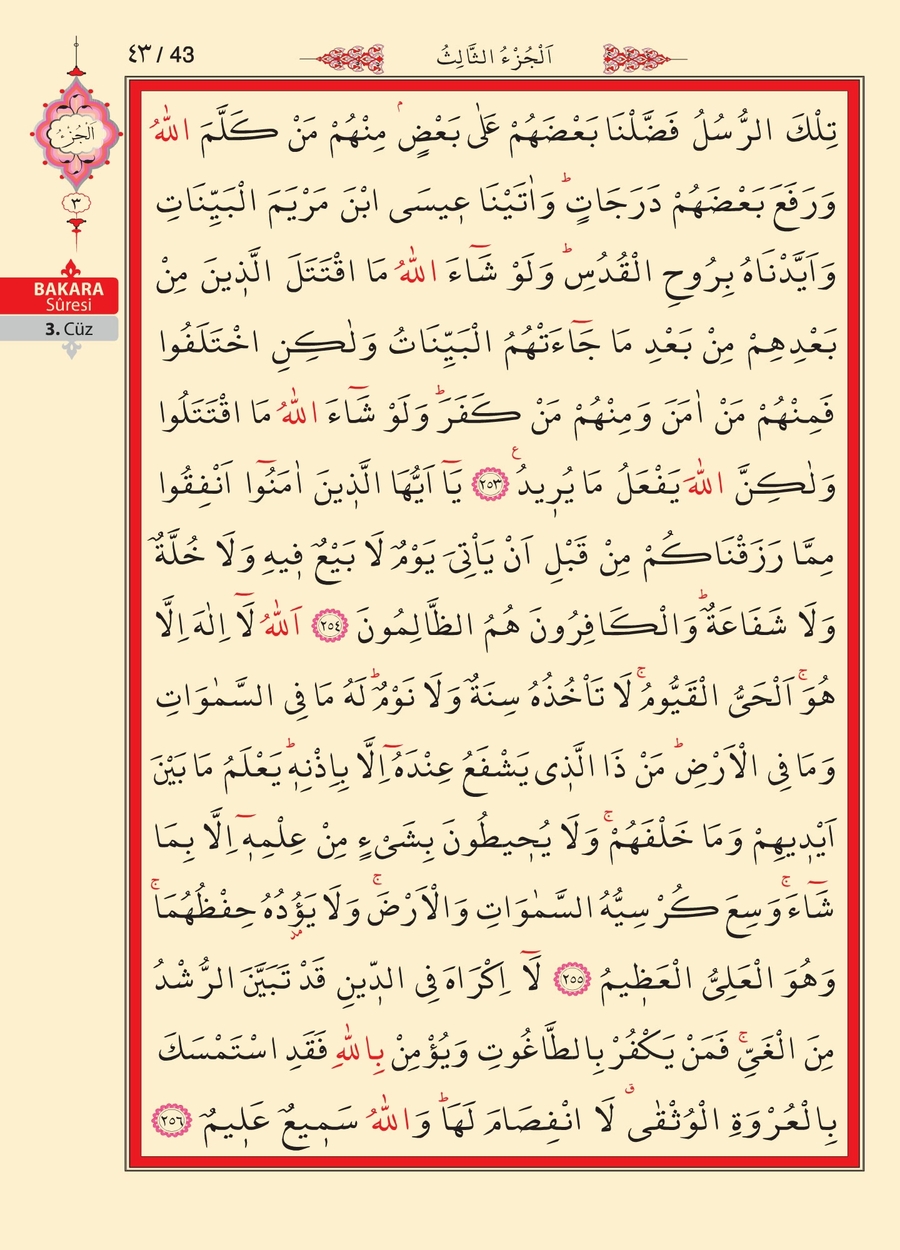 ٤٣ / 43
اَلْجُزْءُ الثَّالِثُ
اَلْجُزْءُ
٣
BAKARA
Sûresi
3. Cüz
تِلْكَ الرُّسُلُ فَضَّلْنَا بَعْضَهُمْ عَلٰى بَعْضٍۢ مِنْهُمْ مَنْ كَلَّمَ اللّٰهُ
وَرَفَعَ بَعْضَهُمْ دَرَجَاتٍۜ وَاٰتَيْنَا ع۪يسَى ابْنَ مَرْيَمَ الْبَيِّنَاتِ
وَاَيَّدْنَاهُ بِرُوحِ الْقُدُسِۜ وَلَوْ شَٓاءَ اللّٰهُ مَا اقْتَتَلَ الَّذ۪ينَ مِنْ
بَعْدِهِمْ مِنْ بَعْدِ مَا جَٓاءَتْهُمُ الْبَيِّنَاتُ وَلٰكِنِ اخْتَلَفُوا
فَمِنْهُمْ مَنْ اٰمَنَ وَمِنْهُمْ مَنْ كَفَرَۜ وَلَوْ شَٓاءَ اللّٰهُ مَا اقْتَتَلُوا
وَلٰكِنَّ اللّٰهَ يَفْعَلُ مَا يُر۪يدُ۟ ﴿٢٥٣﴾ يَٓا اَيُّهَا الَّذ۪ينَ اٰمَنُٓوا اَنْفِقُوا
مِمَّا رَزَقْنَاكُمْ مِنْ قَبْلِ اَنْ يَأْتِيَ يَوْمٌ لَا بَيْعٌ ف۪يهِ وَلَا خُلَّةٌ
وَلَا شَفَاعَةٌۜ وَالْكَافِرُونَ هُمُ الظَّالِمُونَ ﴿٢٥٤﴾ اَللّٰهُ لَٓا اِلٰهَ اِلَّا
هُوَۚ اَلْحَيُّ الْقَيُّومُۚ لَا تَأْخُذُهُ سِنَةٌ وَلَا نَوْمٌۜ لَهُ مَا فِي السَّمٰوَاتِ
وَمَا فِي الْاَرْضِۜ مَنْ ذَا الَّذ۪ي يَشْفَعُ عِنْدَهُٓ اِلَّا بِاِذْنِه۪ۜ يَعْلَمُ مَا بَيْنَ
اَيْد۪يهِمْ وَمَا خَلْفَهُمْۚ وَلَا يُح۪يطُونَ بِشَيْءٍ مِنْ عِلْمِه۪ٓ اِلَّا بِمَا
شَٓاءَۚ وَسِعَ كُرْسِيُّهُ السَّمٰوَاتِ وَالْاَرْضَۚ وَلَا يَؤُ۫دُهُ حِفْظُهُمَاۚ
وَهُوَ الْعَلِيُّ الْعَظ۪يمُ ﴿٢٥٥﴾ لَٓا اِكْرَاهَ فِي الدّ۪ينِ قَدْ تَبَيَّنَ الرُّشْدُ
مِنَ الْغَيِّۚ فَمَنْ يَكْفُرْ بِالطَّاغُوتِ وَيُؤْمِنْ بِاللّٰهِ فَقَدِ اسْتَمْسَكَ
بِالْعُرْوَةِ الْوُثْقٰىۗ لَا انْفِصَامَ لَهَاۜ وَاللّٰهُ سَم۪يعٌ عَل۪يمٌ ﴿٢٥٦﴾